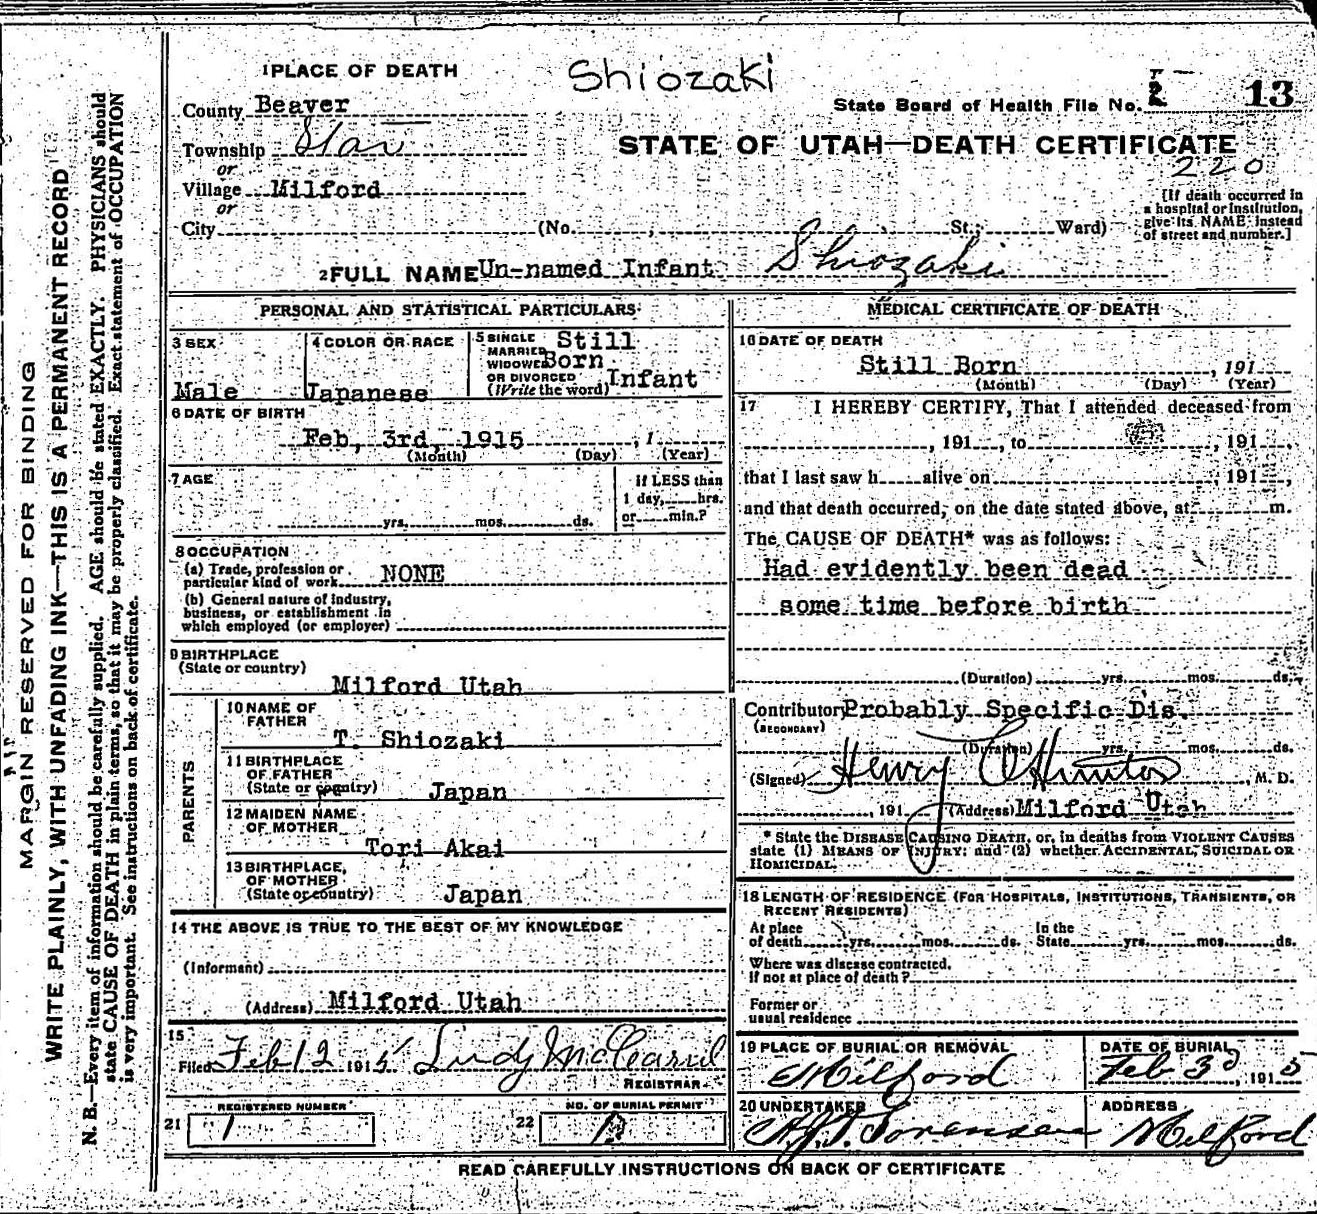 Shiozaki
1 PLACE OF DEATH
County Beaver
State Board of Health File No. 13
Township Star
STATE OF UTAH—DEATH CERTIFICATE
220
or
Village Milford
or
City (No. , St.; Ward)
[If death occurred in
a hospital or institution,
give its NAME instead
of street and number.]
2 FULL NAME Un-named Infant Shiozaki
PERSONAL AND STATISTICAL PARTICULARS
3 SEX
Male
4 COLOR OR RACE
Japanese
5 SINGLE
MARRIED
WIDOWED
OR DIVORCED
(Write the word)
Still
Born
Infant
6 DATE OF BIRTH
Feb, 3rd, 1915 , 1
(Month) (Day) (Year)
7 AGE
yrs. mos. ds.
If LESS than
1 day, hrs.
or min.?
8 OCCUPATION
(a) Trade, profession or
particular kind of work NONE
(b) General nature of industry,
business, or establishment in
which employed (or employer)
9 BIRTHPLACE
(State or country)
Milford Utah
PARENTS
10 NAME OF
FATHER
T. Shiozaki
11 BIRTHPLACE
OF FATHER
(State or country) Japan
12 MAIDEN NAME
OF MOTHER
Tori Akai
13 BIRTHPLACE,
OF MOTHER
(State or country) Japan
14 THE ABOVE IS TRUE TO THE BEST OF MY KNOWLEDGE
(Informant)
(Address) Milford Utah
15
Filed Feb 12 1915
REGISTRAR
21 REGISTERED NUMBER
1
22 NO. OF BURIAL PERMIT
MEDICAL CERTIFICATE OF DEATH
16 DATE OF DEATH
Still Born , 191
(Month) (Day) (Year)
17 I HEREBY CERTIFY, That I attended deceased from
, 191 , to , 191 ,
that I last saw h alive on , 191 ,
and that death occurred, on the date stated above, at m.
The CAUSE OF DEATH* was as follows:
Had evidently been dead
some time before birth
(Duration) yrs. mos. ds.
Contributory Probably Specific Dis.
(SECONDARY)
(Duration) yrs. mos. ds.
(Signed) Henry , M. D.
, 191 (Address) Milford Utah
* State the DISEASE CAUSING DEATH, or, in deaths from VIOLENT CAUSES
state (1) MEANS OF INJURY; and (2) whether ACCIDENTAL, SUICIDAL OR
HOMICIDAL.
18 LENGTH OF RESIDENCE (FOR HOSPITALS, INSTITUTIONS, TRANSIENTS, OR
RECENT RESIDENTS)
At place
of death yrs. mos. ds.
In the
State yrs. mos. ds.
Where was disease contracted,
if not at place of death?
Former or
usual residence
19 PLACE OF BURIAL OR REMOVAL
Milford
DATE OF BURIAL
Feb 3d , 1915
20 UNDERTAKER
Sorensen
ADDRESS
Milford
READ CAREFULLY INSTRUCTIONS ON BACK OF CERTIFICATE
MARGIN RESERVED FOR BINDING
WRITE PLAINLY, WITH UNFADING INK—THIS IS A PERMANENT RECORD
N. B.—Every item of information should be carefully supplied. AGE should be stated EXACTLY. PHYSICIANS should
state CAUSE OF DEATH in plain terms, so that it may be properly classified. Exact statement of OCCUPATION
is very important. See instructions on back of certificate.